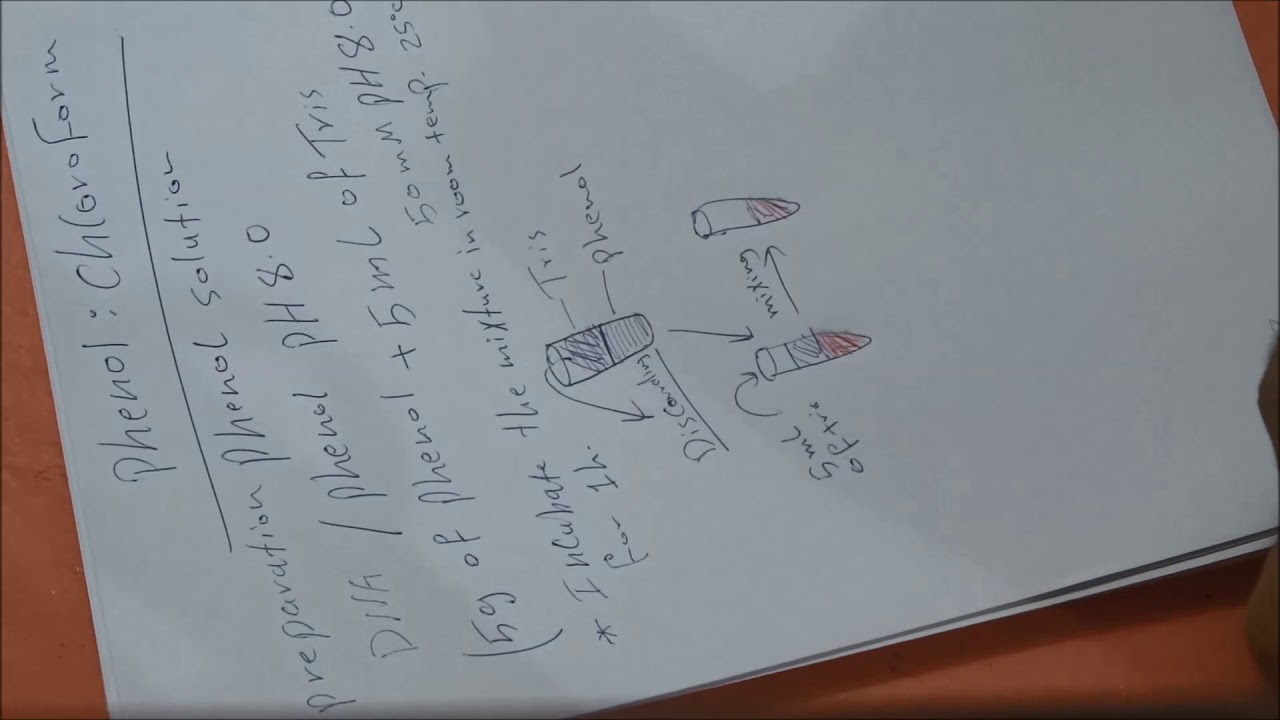 Phenol : Chloroform
preparation phenol solution
DNA / phenol pH 8.0 pH 8.0
(5g of phenol + 5 mL of Tris
50 mM pH 8.0
* Incubate the mixture in room temp. 25°C
For 1h.
Tris
phenol
Discarding
5 mL
of tris
mixing